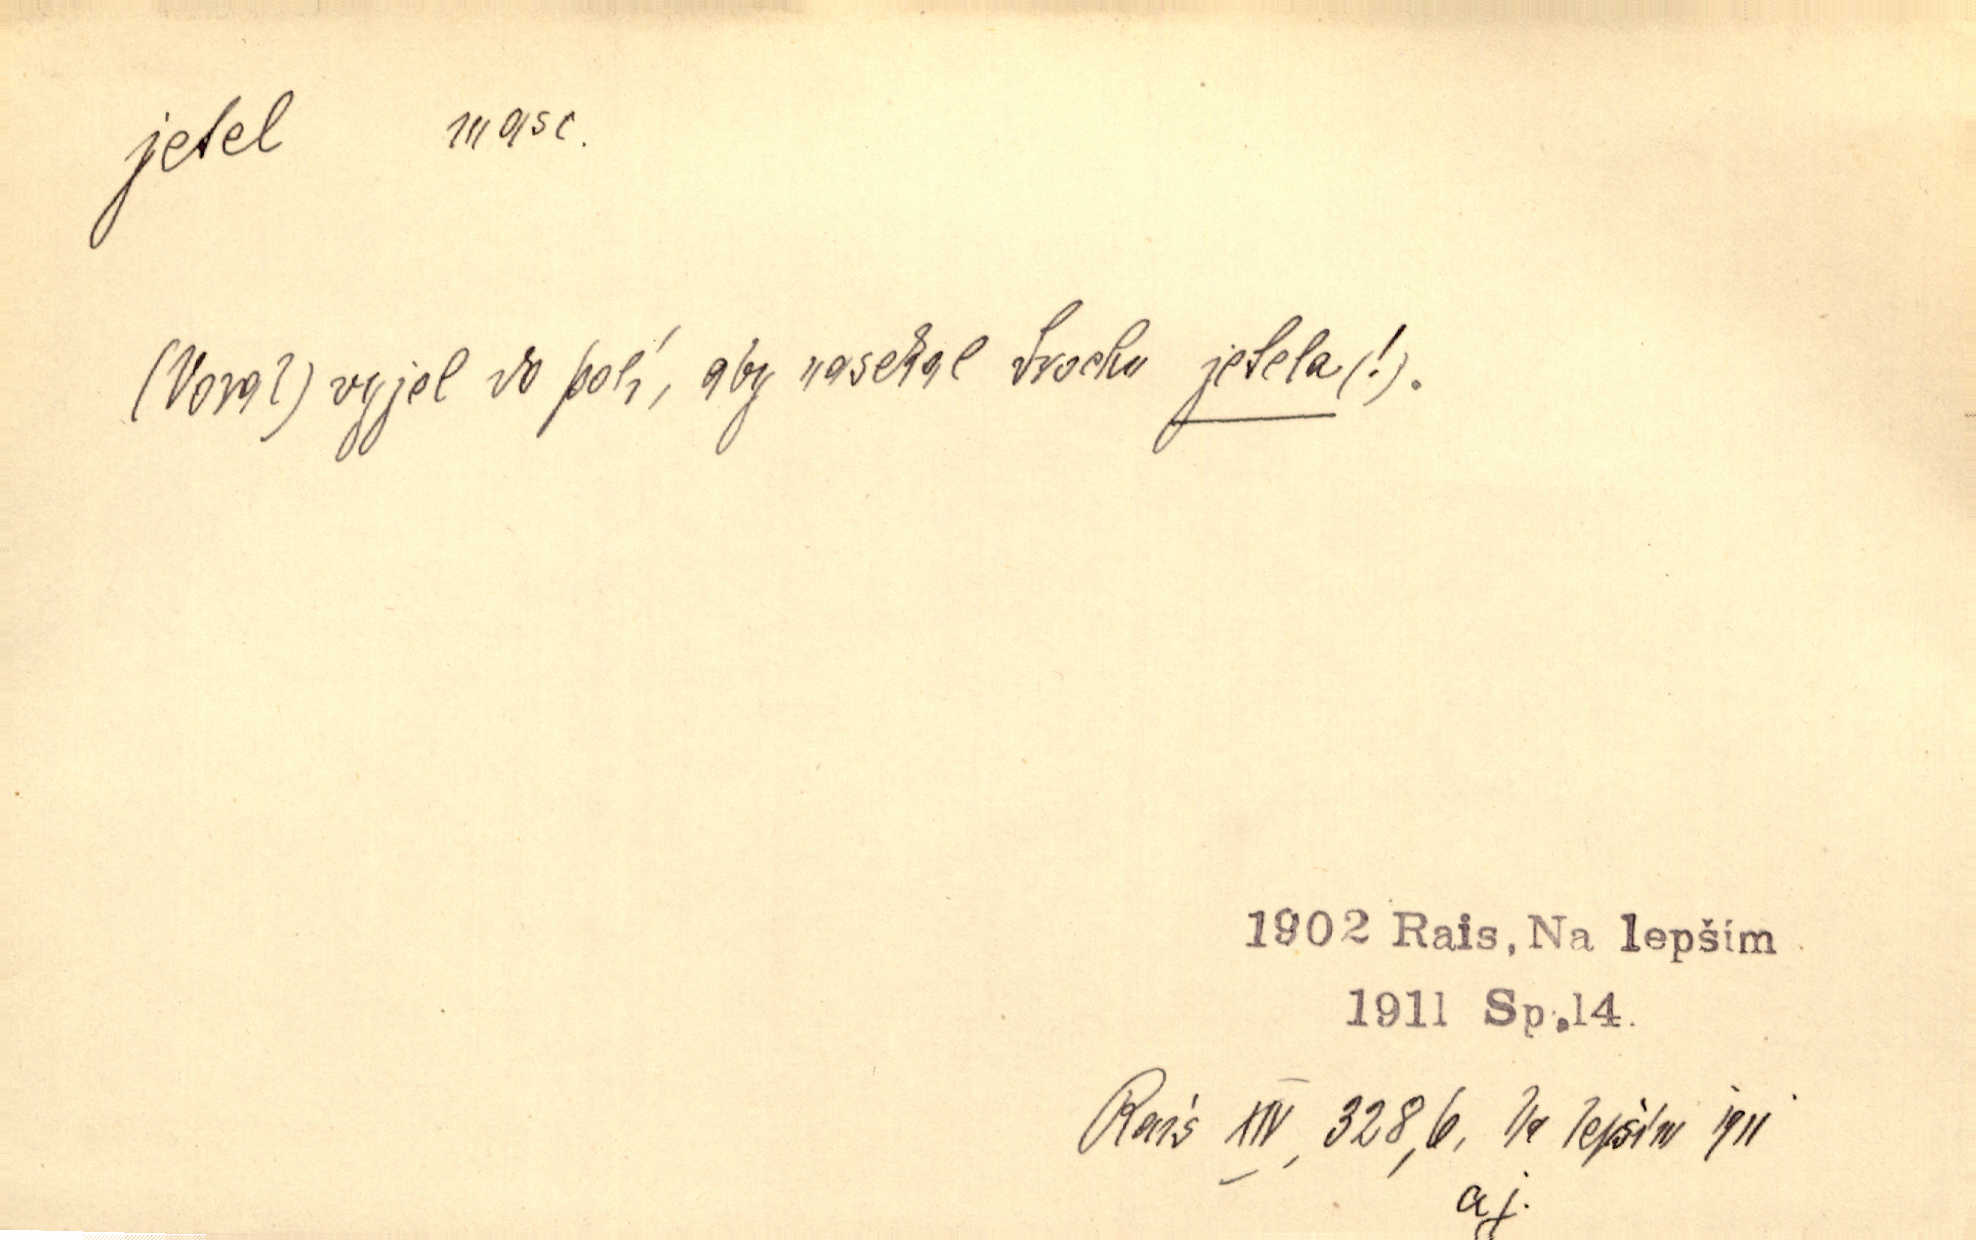 jetel masc.
(Voral) vyjel do polí, aby nasekal trochu jetela (!).
1902 Rais, Na lepším
1911 Sp. 14.
Rais XIV, 328, 6, Na lepším 1911
aj.